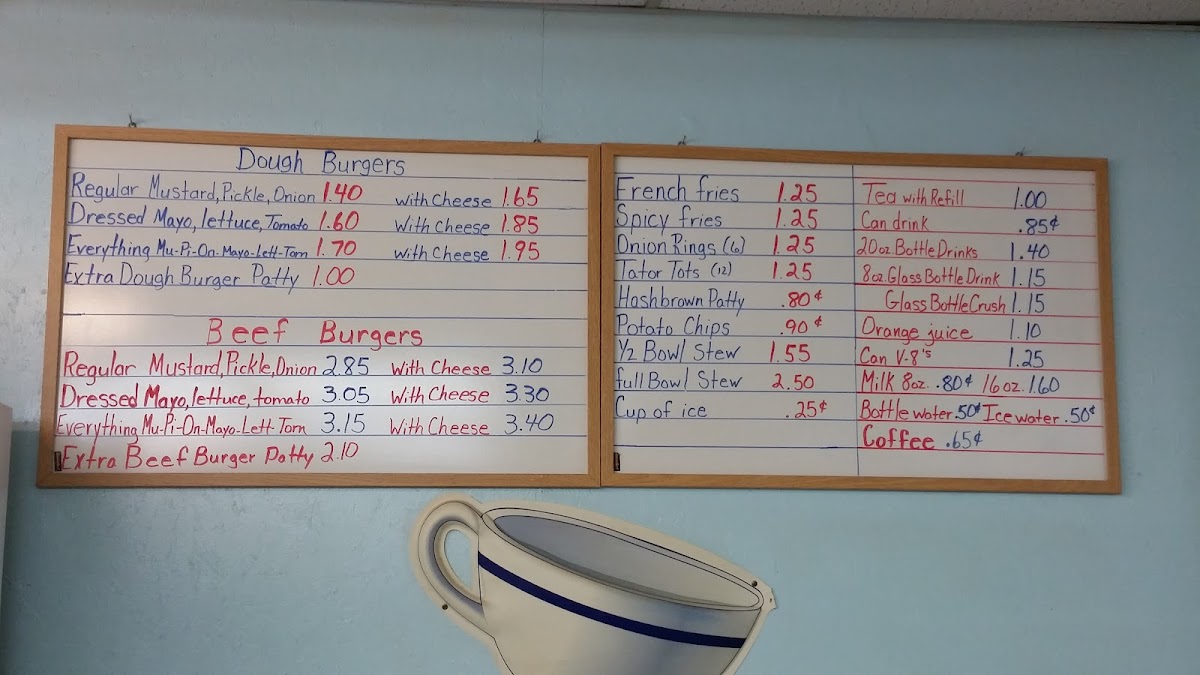 Dough Burgers
Regular Mustard, Pickle, Onion 1.40 with Cheese 1.65
Dressed Mayo, lettuce, Tomato 1.60 with Cheese 1.85
Everything Mu-Pi-On-Mayo-Lett-Tom 1.70 with Cheese 1.95
Extra Dough Burger Patty 1.00
Beef Burgers
Regular Mustard, Pickle, Onion 2.85 With Cheese 3.10
Dressed Mayo, lettuce, tomato 3.05 With Cheese 3.30
Everything Mu-Pi-On-Mayo-Lett-Tom 3.15 With Cheese 3.40
Extra Beef Burger Patty 2.10
French fries 1.25
Spicy fries 1.25
Onion Rings (6) 1.25
Tator Tots (12) 1.25
Hashbrown Patty .80¢
Potato Chips .90¢
1/2 Bowl Stew 1.55
full Bowl Stew 2.50
Cup of ice .25¢
Tea with Refill 1.00
Can drink .85¢
20oz. Bottle Drinks 1.40
8oz. Glass Bottle Drink 1.15
Glass Bottle Crush 1.15
Orange juice 1.10
Can V-8's 1.25
Milk 8oz. .80¢ 16oz. 1.60
Bottle water .50¢ Ice water .50¢
Coffee .65¢